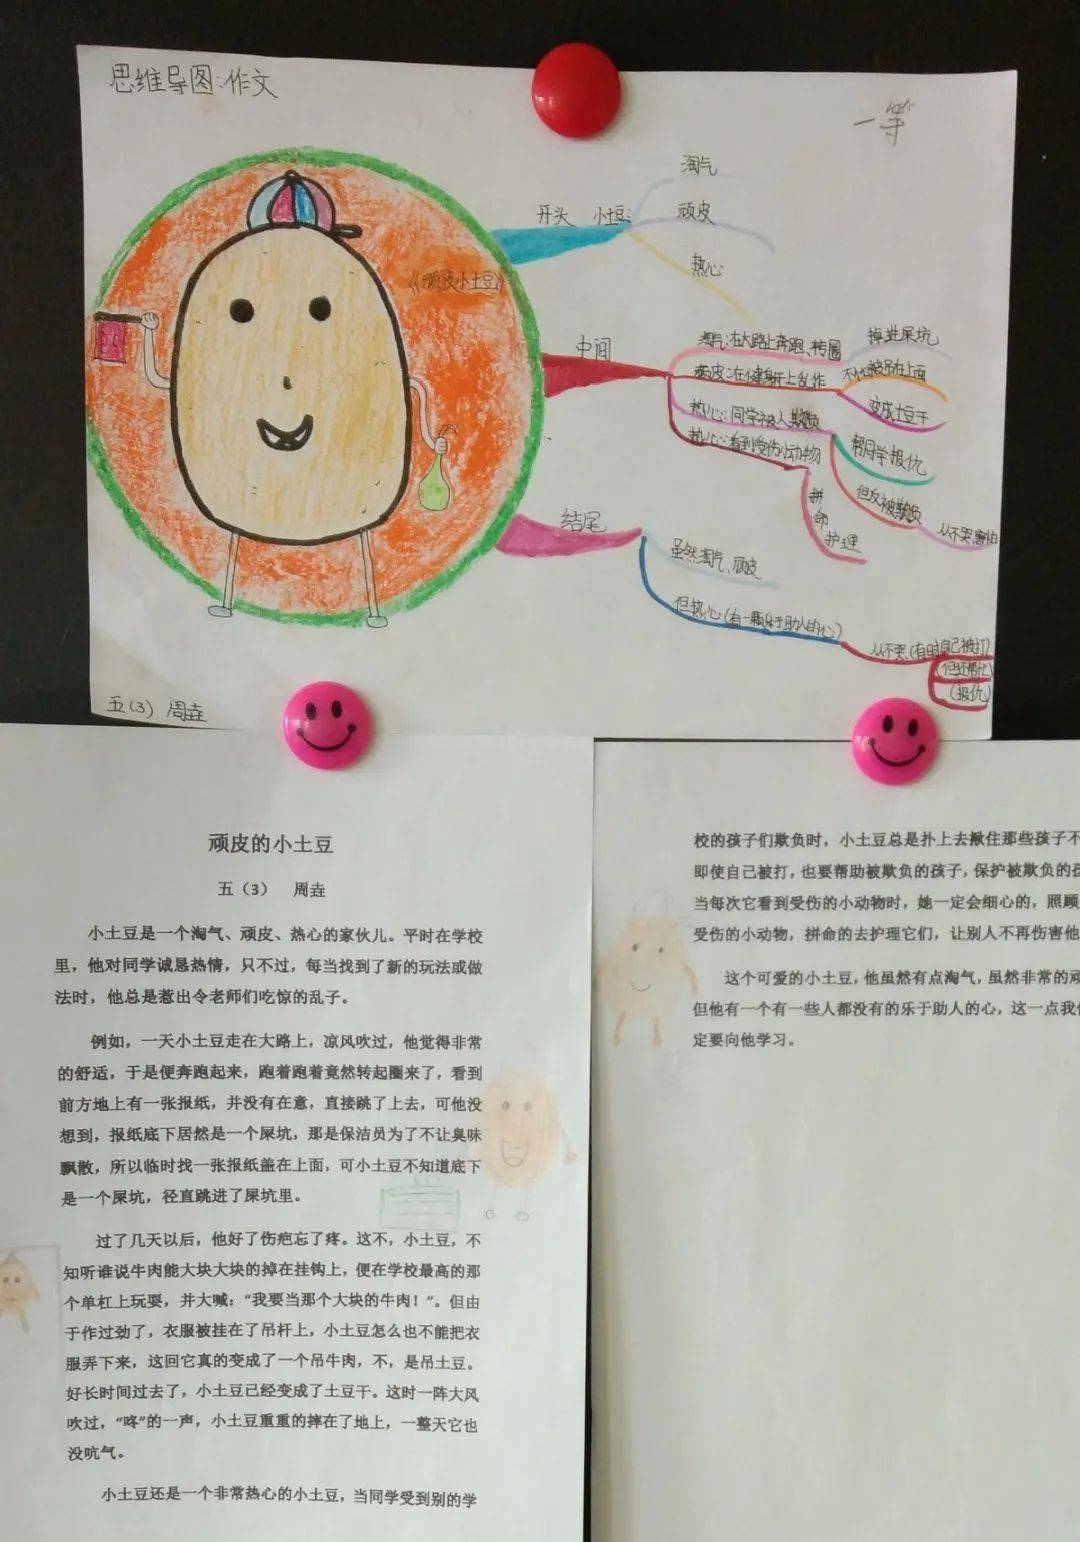 思维导图:作文
一等
《顽皮小土豆》
开头 小土豆:
淘气
顽皮
热心
中间
淘气:在大路上奔跑、转圈
掉进屎坑
顽皮:在健身杆上乱作
不心被吊在上面
变成土豆干
热心:同学被人欺负
帮同学报仇
但反被欺负
从不哭
热心:看到受伤小动物
拼命护理
结尾
虽然淘气、顽皮
但热心(有一颗乐于助人的心)
从不哭(有时自己被打)
(但还帮忙)
(报仇)
五(3) 周垚
顽皮的小土豆
五(3) 周垚
小土豆是一个淘气、顽皮、热心的家伙儿。平时在学校
里,他对同学诚恳热情,只不过,每当找到了新的玩法或做
法时,他总是惹出令老师们吃惊的乱子。
例如,一天小土豆走在大路上,凉风吹过,他觉得非常
的舒适,于是便奔跑起来,跑着跑着竟然转起圈来了,看到
前方地上有一张报纸,并没有在意,直接跳了上去,可他没
想到,报纸底下居然是一个屎坑,那是保洁员为了不让臭味
飘散,所以临时找一张报纸盖在上面,可小土豆不知道底下
是一个屎坑,径直跳进了屎坑里。
过了几天以后,他好了伤疤忘了疼。这不,小土豆,不
知听谁说牛肉能大块大块的掉在挂钩上,便在学校最高的那
个单杠上玩耍,并大喊:“我要当那个大块的牛肉!”。但由
于作过劲了,衣服被挂在了吊杆上,小土豆怎么也不能把衣
服弄下来,这回它真的变成了一个吊牛肉,不,是吊土豆。
好长时间过去了,小土豆已经变成了土豆干。这时一阵大风
吹过,“咚”的一声,小土豆重重的摔在了地上,一整天它也
没吭气。
小土豆还是一个非常热心的小土豆,当同学受到别的学
校的孩子们欺负时,小土豆总是扑上去揪住那些孩子不
即使自己被打,也要帮助被欺负的孩子,保护被欺负的孩
当每次它看到受伤的小动物时,她一定会细心的,照顾
受伤的小动物,拼命的去护理它们,让别人不再伤害他
这个可爱的小土豆,他虽然有点淘气,虽然非常的顽
但他有一个有一些人都没有的乐于助人的心,这一点我们
定要向他学习。